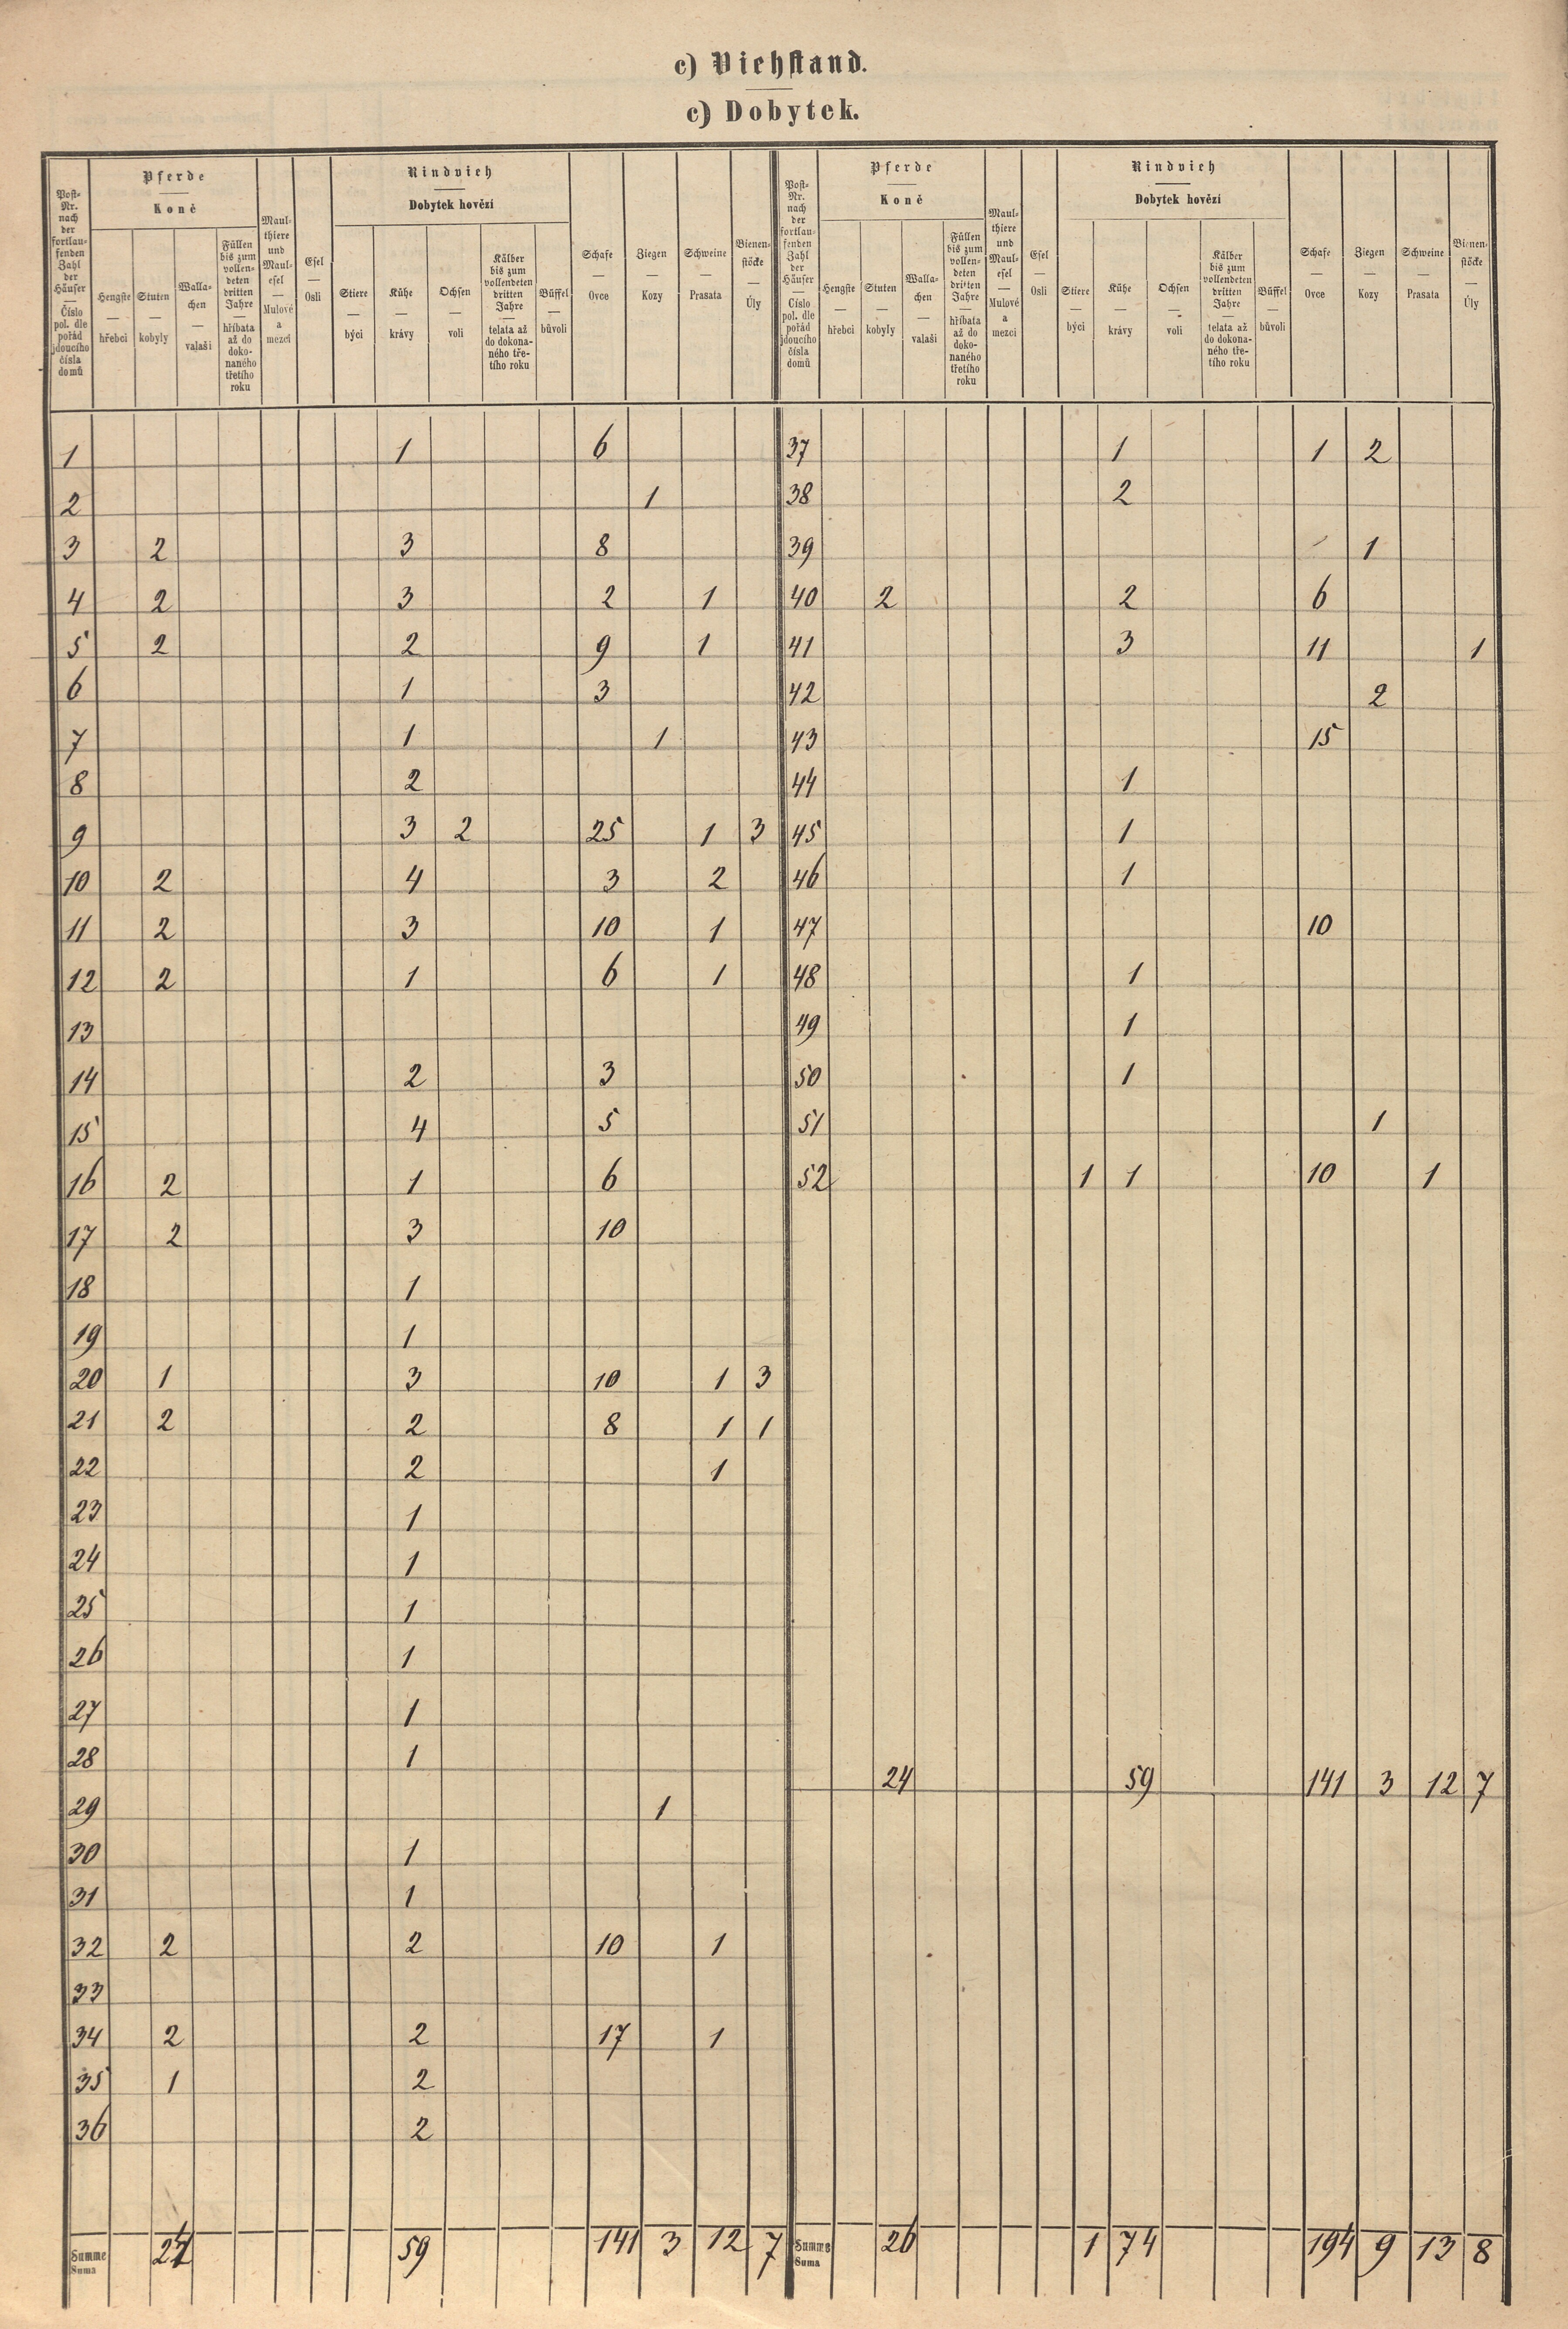 c) Viehstand.
c) Dobytek.
Post-Nr. nach der fortlaufenden Zahl der Häuser — Číslo pol. dle pořád jdoucího čísla domů
Pferde — Koně
Hengste — hřebci
Stuten — kobyly
Wallachen — valaši
Füllen bis zum vollendeten dritten Jahre — hříbata až do dokonaného třetího roku
Maulthiere und Maulesel — Mulové a mezci
Esel — Osli
Rindvieh — Dobytek hovězí
Stiere — býci
Kühe — krávy
Ochsen — voli
Kälber bis zum vollendeten dritten Jahre — telata až do dokonaného třetího roku
Büffel — bůvoli
Schafe — Ovce
Ziegen — Kozy
Schweine — Prasata
Bienenstöcke — Úly
1 1 6
2 1
3 2 3 8
4 2 3 2 1
5 2 2 9 1
6 1 3
7 1 1
8 2
9 3 2 25 1 3
10 2 4 3 2
11 2 3 10 1
12 2 1 6 1
13
14 2 3
15 4 5
16 2 1 6
17 2 3 10
18 1
19 1
20 1 3 10 1 3
21 2 2 8 1 1
22 2 1
23 1
24 1
25 1
26 1
27 1
28 1
29 1
30 1
31 1
32 2 2 10 1
33
34 2 2 17 1
35 1 2
36 2
Summe Suma 24 59 141 3 12 7
Post-Nr. nach der fortlaufenden Zahl der Häuser — Číslo pol. dle pořád jdoucího čísla domů
Pferde — Koně
Hengste — hřebci
Stuten — kobyly
Wallachen — valaši
Füllen bis zum vollendeten dritten Jahre — hříbata až do dokonaného třetího roku
Maulthiere und Maulesel — Mulové a mezci
Esel — Osli
Rindvieh — Dobytek hovězí
Stiere — býci
Kühe — krávy
Ochsen — voli
Kälber bis zum vollendeten dritten Jahre — telata až do dokonaného třetího roku
Büffel — bůvoli
Schafe — Ovce
Ziegen — Kozy
Schweine — Prasata
Bienenstöcke — Úly
37 1 1 2
38 2
39 1
40 2 2 6
41 3 11 1
42 2
43 15
44 1
45 1
46 1
47 10
48 1
49 1
50 1
51 1
52 1 1 10 1
24 59 141 3 12 7
Summe Suma 26 1 74 194 9 13 8